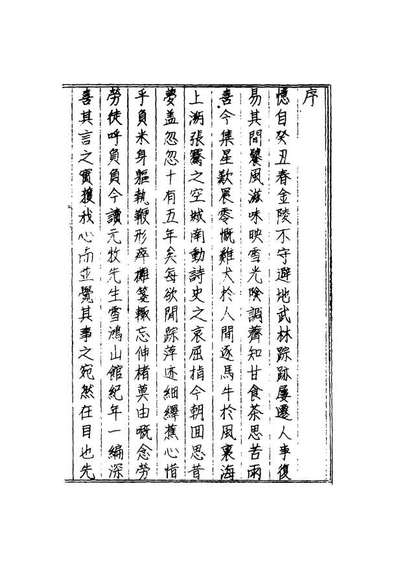 序
憶自癸丑春金陵不守避地武林踪跡屢遷人事復
易其間饕風滋味映雪光陰調薺知甘食荼思苦雨
喜今集星歎晨零慨雞犬於人間逐馬牛於風裏海
上浙張騫之空城南動詩史之哀屈指今朝回思昔
夢蓋忽忽十有五年矣每欲閒踪萍迹細繹蕉心惜
乎負米身軀執鞭形瘁摛箋輒忘伸楮莫由嘅念勞
勞徒呼負負今讀元牧先生雪鴻山館紀年一編深
喜其言之實獲我心而並覺其事之宛然在目也先